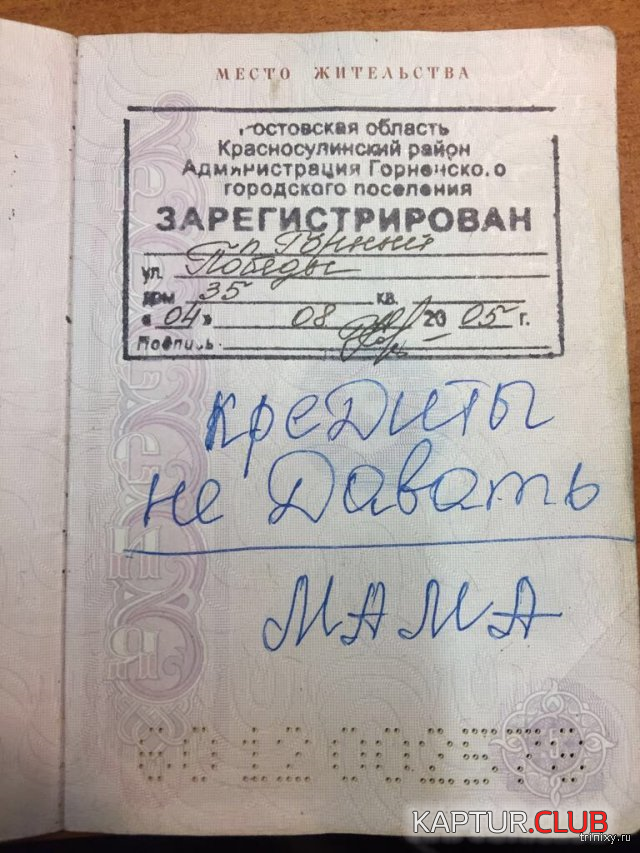 МЕСТО ЖИТЕЛЬСТВА
Ростовская область
Красносулинский район
Администрация Горненского
городского поселения
ЗАРЕГИСТРИРОВАН
п. Горный
ул. Победы
дом 35 кв.
«04» 08 20 05 г.
Подпись
кредиты
не давать
МАМА
KAPTUR.CLUB
trinixy.ru